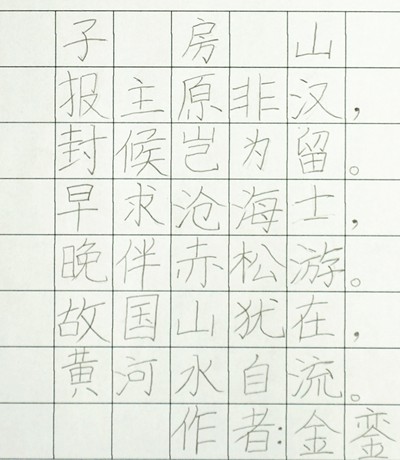 子房山
报主原非汉，
封候岂为留。
早求沧海士，
晚伴赤松游。
故国山犹在，
黄河水自流。
作者:金銮